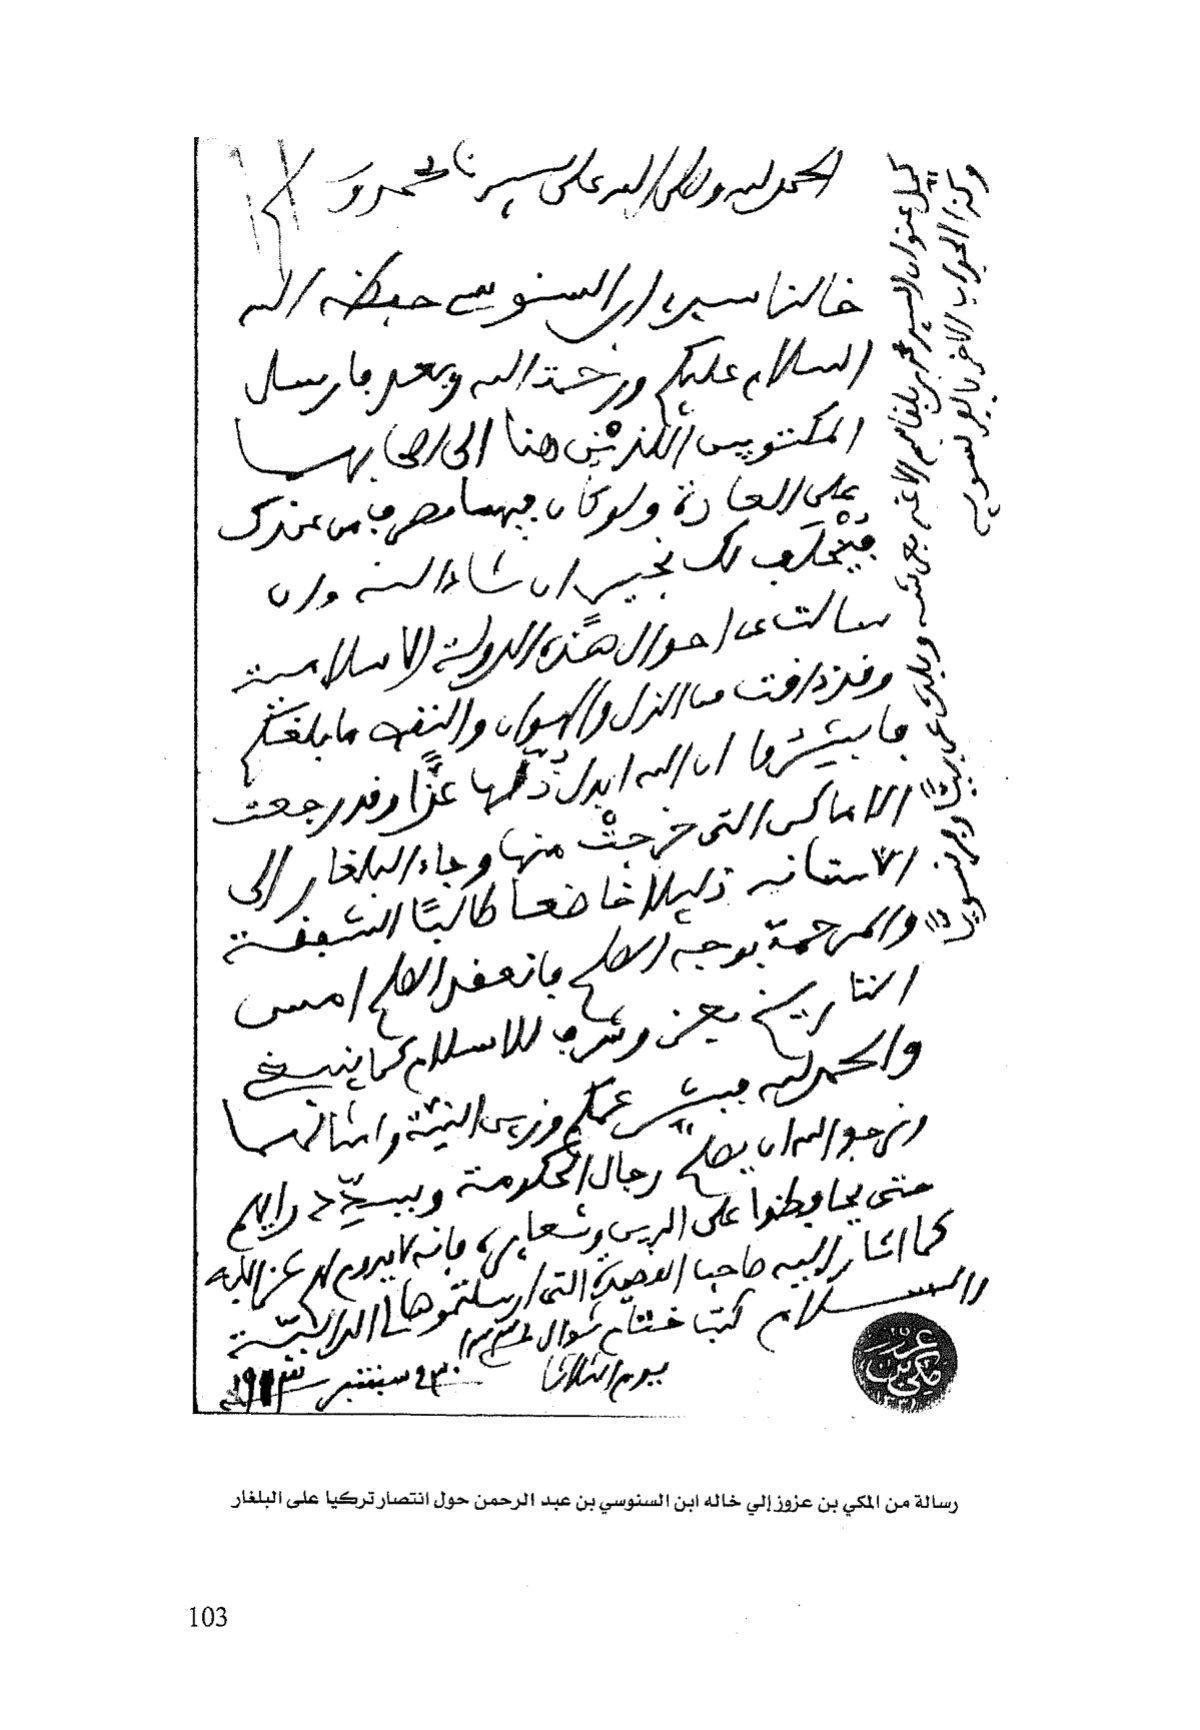 الحمد لله وصلى الله على سيدنا محمد و
خالنا سيدي ابن السنوسي حفظه الله
السلام عليكم ورحمة الله وبعد فارسل
المكتوبين اللذين هنا الى اصحابهما
على العادة ولو كان فيهما مصرف من عندك
فيُخْلَف لك بخير ان شاء الله وان
سالت عن احوال هذه الدولة الاسلامية
وقد ذافت من الذل والهوان والنقص ما بلغكم
فابشركم ان الله ابدل ذلها عزًّا وقد رجعت
الاماكن التي خرجتْ منها وجاء البلغار الى
الاستانه ذليلا خاضعا طالبًا الشفقة
والمرحمة بوجه الصلح فانعقد الصلح امس
التاريخ بعز وشرف للاسلام كما ينبغي
والحمد لله فبشر عمكم وزين النية وامثالهما
ونرجو الله ان يصلح رجال الحكومة ويسدّد رايهم
حتى يحافظوا على الدين وشعايره فانه لا يدوم لهم عز الا به
كما اشار اليه صاحب القصيدة التي ارسلتموها
والسلام كتب ختام شوال
يوم الثلاثا ٣٠ سبتمبر ١٩١٣
كمل عنوان السيد محمد بن بلقاسم
وكذا الجواب الاخر
رسالة من المكي بن عزوز إلي خاله ابن السنوسي بن عبد الرحمن حول انتصار تركيا على البلغار
103